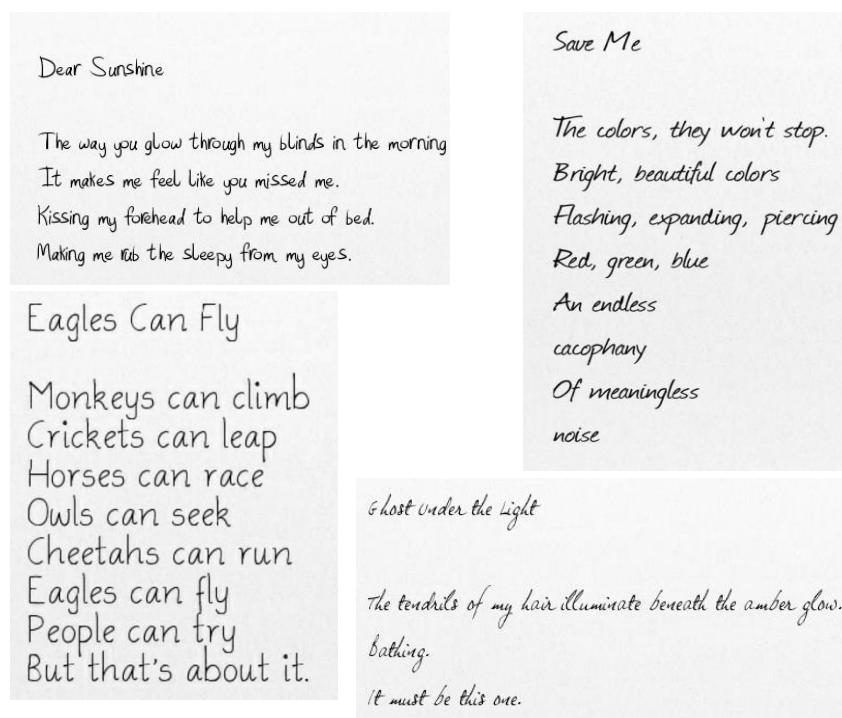 Dear Sunshine
The way you glow through my blinds in the morning
It makes me feel like you missed me.
Kissing my forehead to help me out of bed.
Making me rub the sleepy from my eyes.
Eagles Can Fly
Monkeys can climb
Crickets can leap
Horses can race
Owls can seek
Cheetahs can run
Eagles can fly
People can try
But that's about it.
Save Me
The colors, they won't stop.
Bright, beautiful colors
Flashing, expanding, piercing
Red, green, blue
An endless
cacophany
Of meaningless
noise
Ghost Under the Light
The tendrils of my hair illuminate beneath the amber glow.
Bathing.
It must be this one.